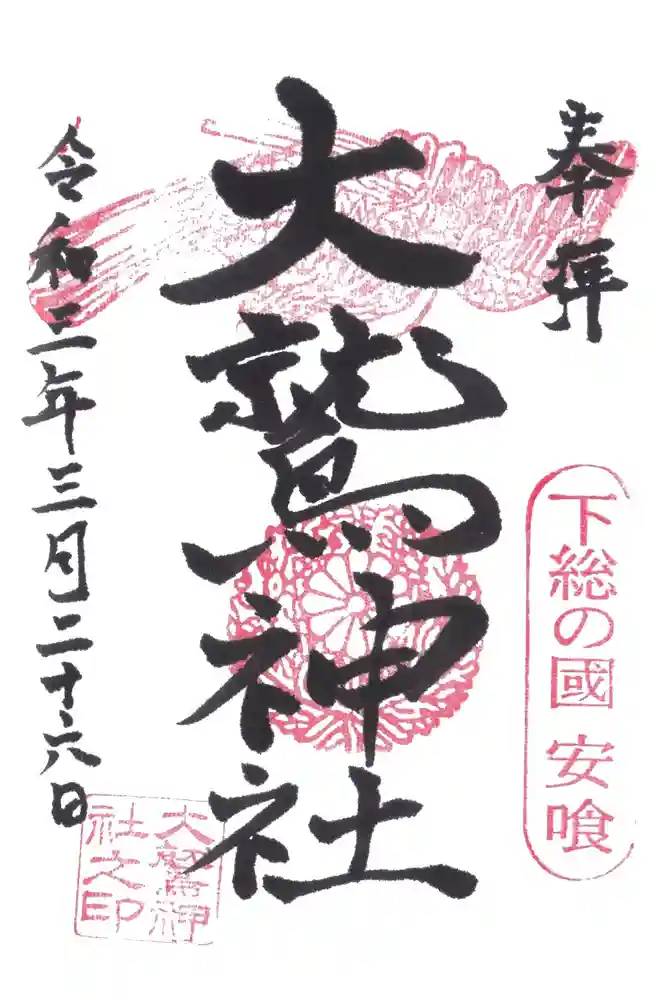 奉拝
下総の國 安喰
大鷲神社
大鷲神
社之印
令和三年三月二十六日